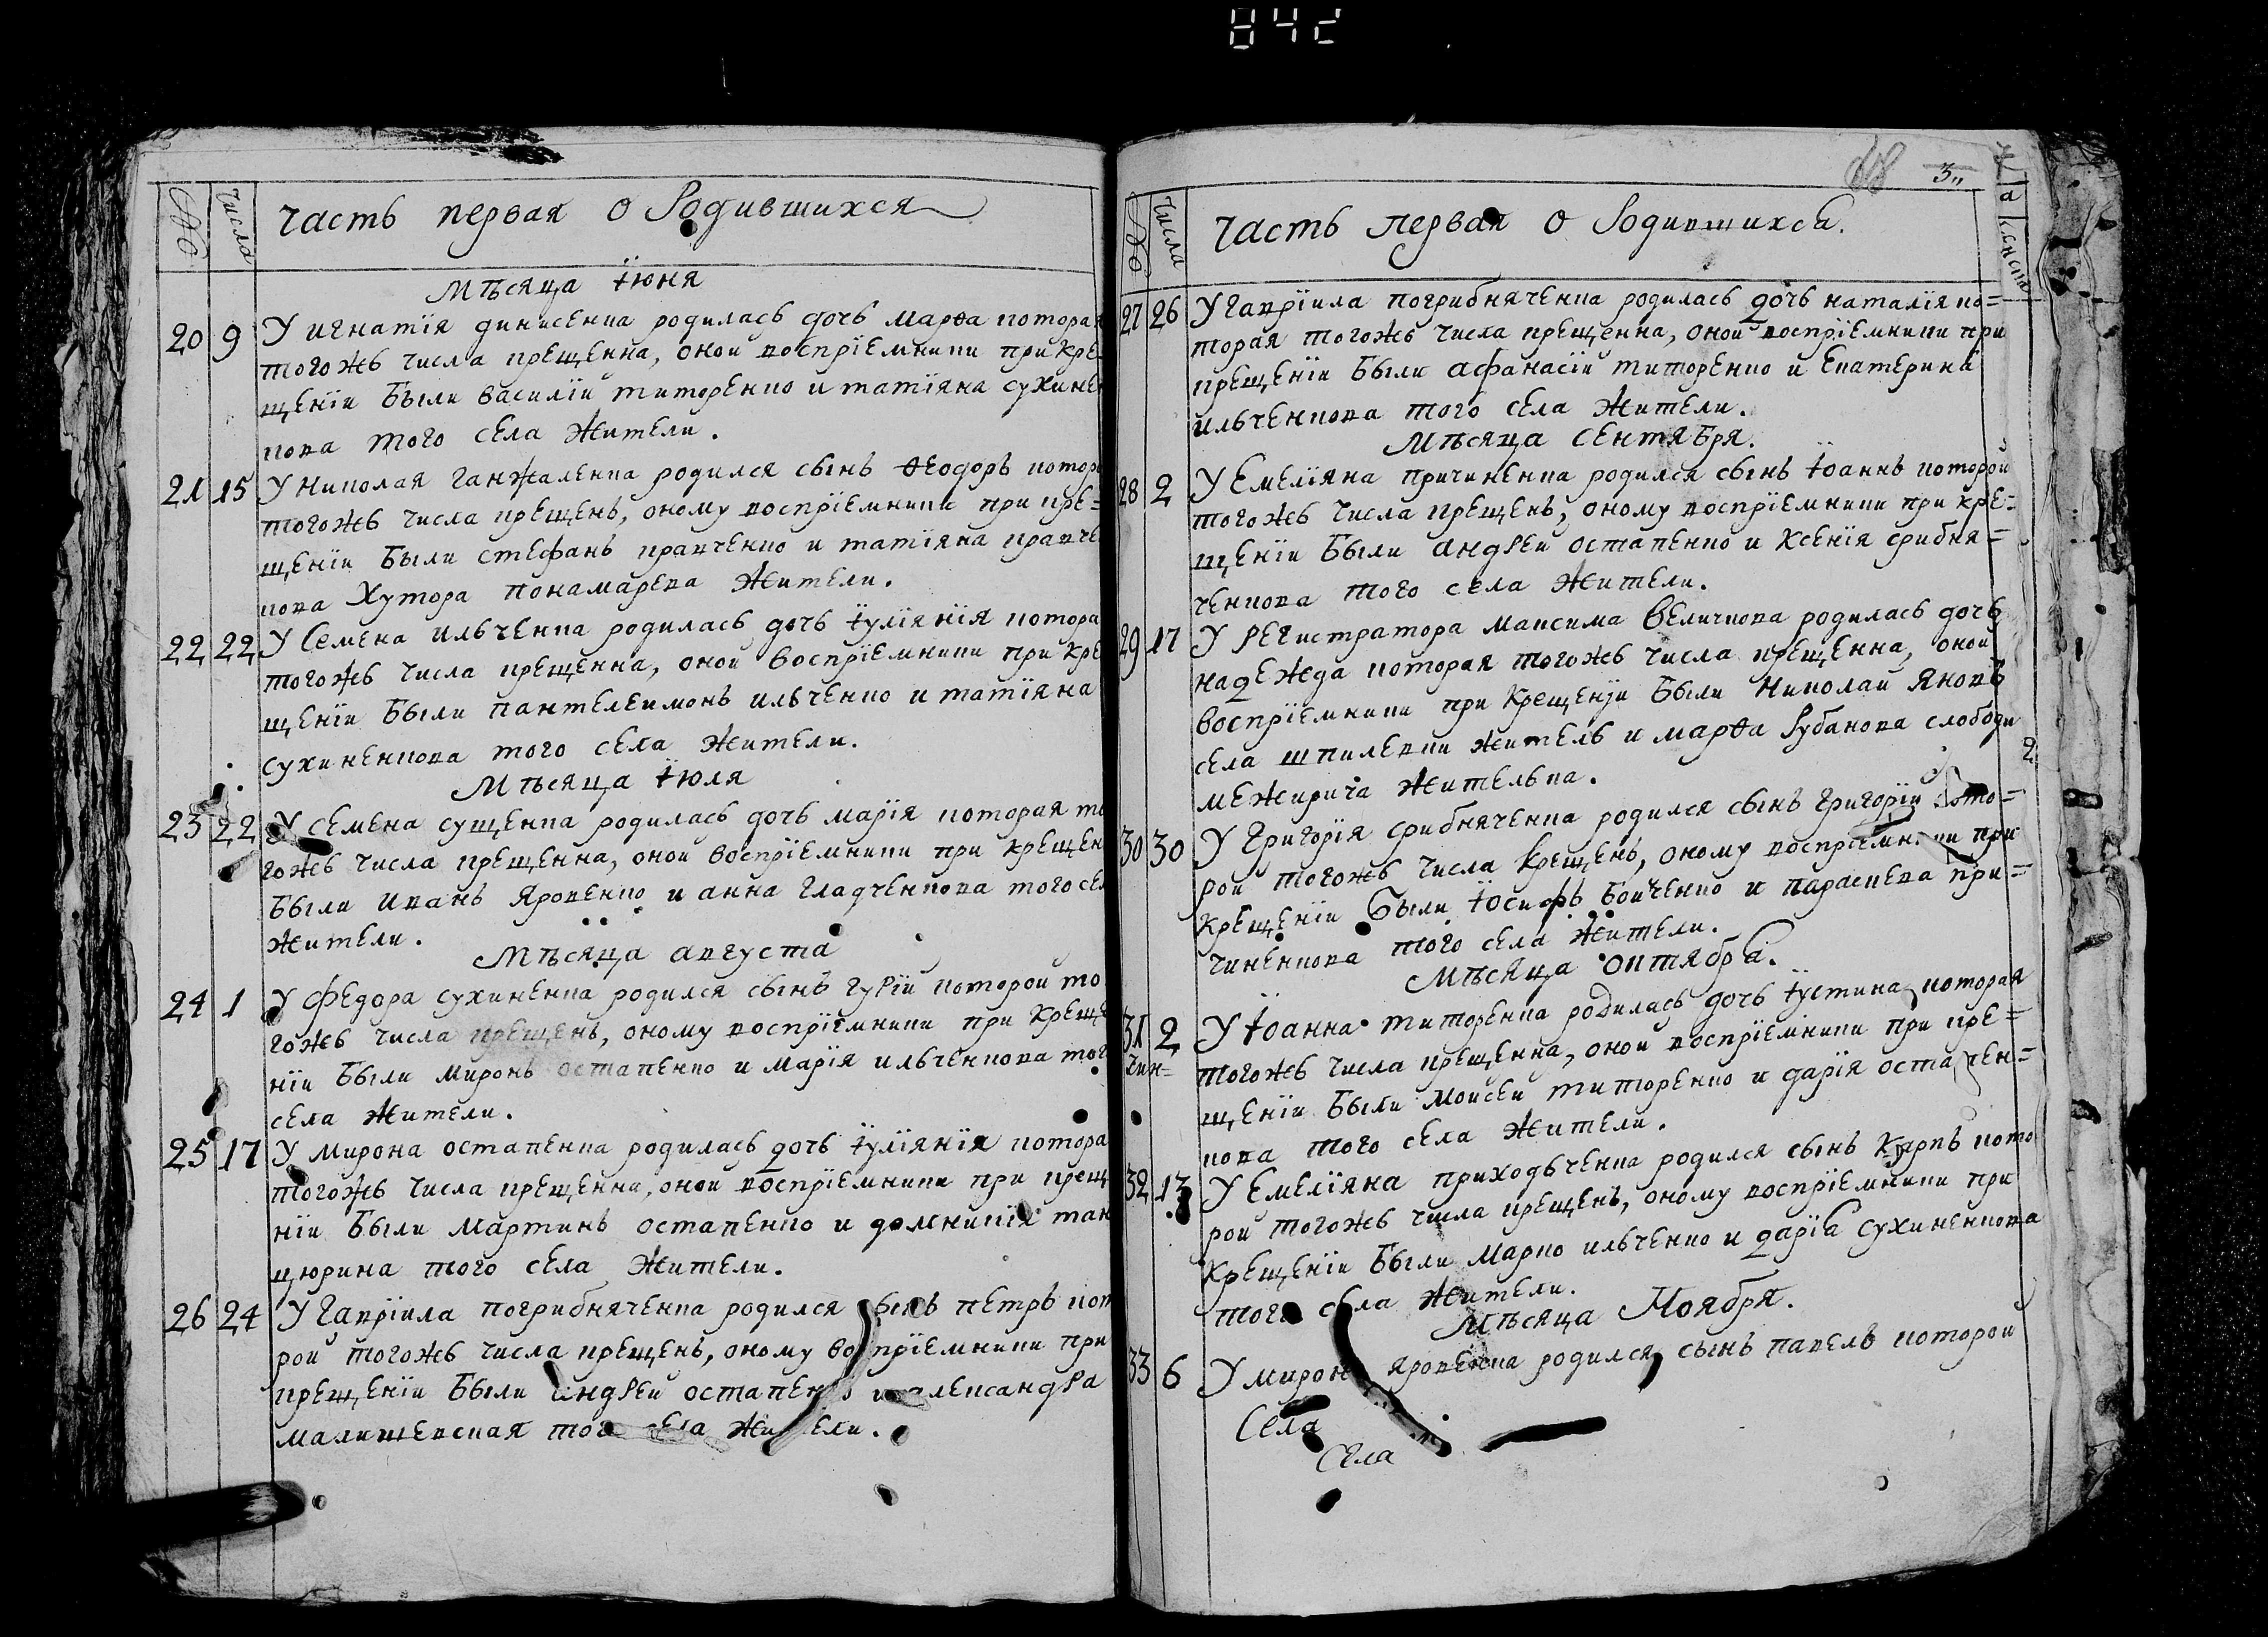 842
№ числа Часть первая о Родившихся
Мѣсяца Іюня
20 9 У игнатїя динисенка родилась дочь марѳа котора
тогожъ числа крещенна, оной воспрїемники при кре
щенїи были василїи титоренко и татїяна сухинен
кова того села жители.
21 15 У Николая Ганжаленка родился сынъ ѳеодоръ котор
тогожъ числа крещенъ, оному воспрїемники при кре=
щенїи были стефанъ кравченко и татїяна кравче
кова хутора понамарева жители.
22 22 У Семена ильченка родилась дочь іулїянїя котора
тогожъ числа крещенна, оной воспрїемники при кре
щенїи были пантелеимонъ ильченко и татїяна
сухиненкова того села жители.
Мѣсяца Іюля
23 22 У семена сущенка родилась дочь марїя которая то
гожъ числа крещенна, оной воспрїемники при крещен
были иванъ яровенко и анна гладченкова того сел
жители.
Мѣсяца августа
24 1 У Федора сухиненка родился сынъ гурїи которой то
гожъ числа крещенъ, оному воспрїемники при креще
нїи были миронъ остапенко и марїя ильченкова того
села жители.
25 17 У мирона остапенка родилась дочь іулїянїя котора
тогожъ числа крещенна, оной воспрїемники при крещ
нїи были мартинъ остапенко и домникїя тан
цюрина того села жители.
26 24 У гаврїила погрибняченка родился сынъ петръ кот
рой тогожъ числа крещенъ, оному воспрїемники при
крещенїи были андреи остапенко и александра
малишевская того села жители.
68 3
№ числа Часть первая о Родившихся.
27 26 У гаврїила погрибняченка родилась дочь наталїя ко=
торая тогожъ числа крещенна, оной воспрїемники при
крещенїи были афанасїи титоренко и екатерина
ильченкова того села жители.
Мѣсяца сентября.
28 2 У Емелїяна причиненка родился сынъ іоаннъ которой
тогожъ числа крещенъ, оному воспрїемники при кре=
щенїи были андреи остапенко и Ксенїя срибня=
ченкова того села жители.
29 17 У регистратора максима Величкова родилась дочь
надежда которая тогожъ числа крещенна, оной
воспрїемники при крещенїи были Николаи яковъ
села шпилевки житель и марѳа Рубанова слободи
межирича жителька.
2
30 30 У Григорїя срибняченка родился сынъ григорїи кото=
рой тогожъ числа крещенъ, оному воспрїемники при
крещенїи были іосифъ боиченко и параскева при=
чиненкова того села жители.
Мѣсяца октября.
31 2 У іоанна титоренка родилась дочь іустина которая
тогожъ числа крещенна, оной воспрїемники при кре=
щенїи были моисеи титоренко и дарїя остапен=
кова того села жители.
32 13 У Емелїяна приходьченка родился сынъ карпъ кото
рой тогожъ числа крещенъ, оному воспрїемники при
крещенїи были марко ильченко и дарїя сухиненкова
того села жители.
Мѣсяца Ноября.
33 6 У мирона яровенка родился сынъ павелъ которой
Села
Села